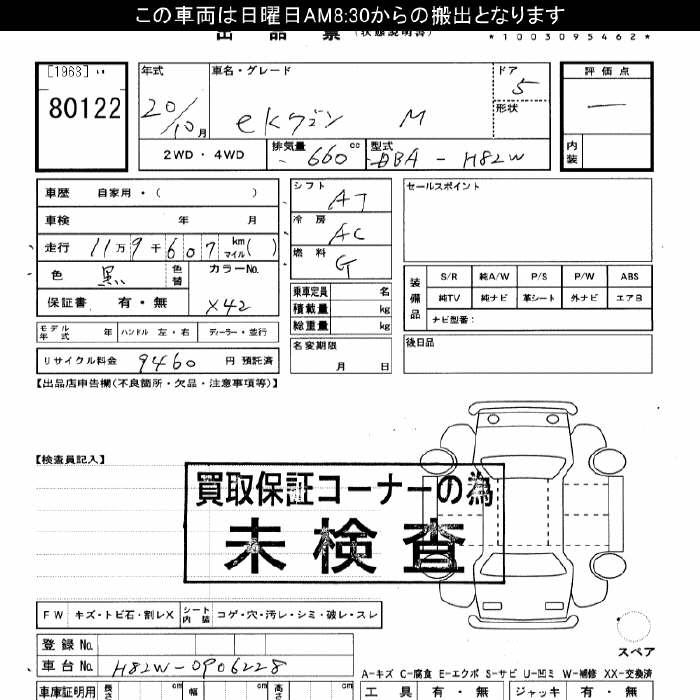 この車両は日曜日AM8:30からの搬出となります
出品票 (状態説明書)
*1003095462*
[1963]
80122
年式 20/10月
車名・グレード ekワゴン M
ドア 5
形状
評価点 —
内装
2WD・4WD
排気量 660 cc
型式 DBA-H82W
車歴 自家用・( )
車検 年 月
走行 11万9千607 km マイル ( )
色 黒 色替 カラーNo. X42
保証書 有・無
モデル年式 年 ハンドル 左・右 ディーラー・並行
リサイクル料金 9460 円 預託済
シフト AT
冷房 AC
燃料 G
乗車定員 名
積載量 kg
総重量 kg
名変期限 月 日
セールスポイント
装備品
S/R 純A/W P/S P/W ABS
純TV 純ナビ 革シート 外ナビ エアB
ナビ型番:
後日品
【出品店申告欄(不良箇所・欠品・注意事項等)】
【検査員記入】
買取保証コーナーの為
未検査
FW キズ・トビ石・割レX シート内装 コゲ・穴・汚レ・シミ・破レ・スレ
スペア
登録No.
車台No. H82W-0906228
A-キズ C-腐食 E-エクボ S-サビ U-凹ミ W-補修 XX-交換済
車庫証明用 長さ cm 幅 cm 高さ cm
工具 有・無 ジャッキ 有・無